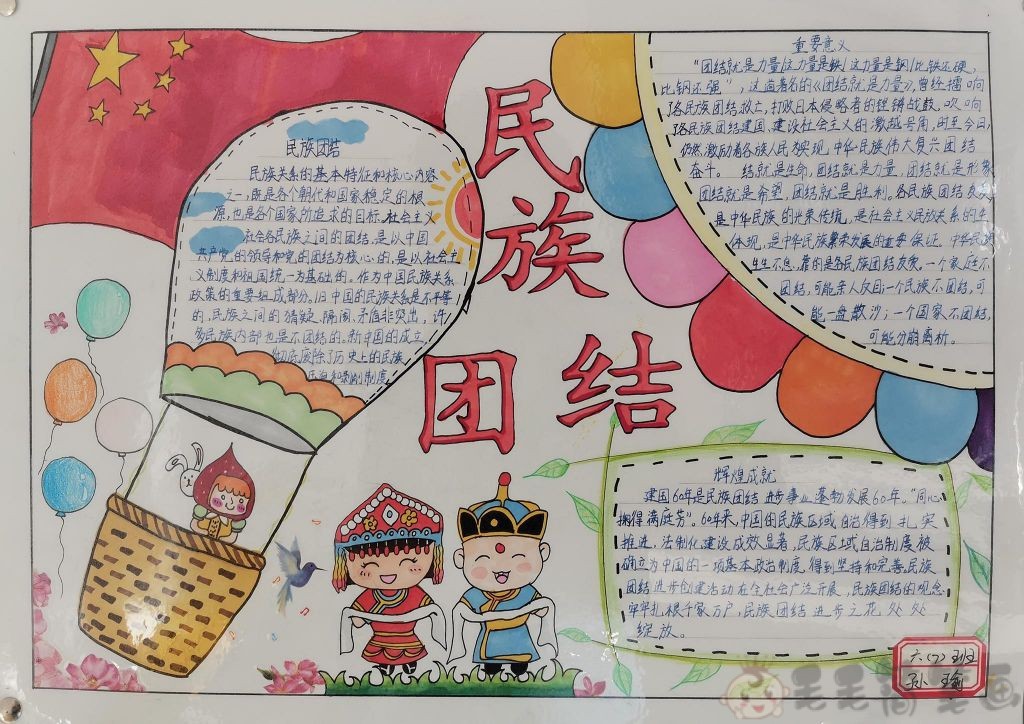 民族团结
民族团结
民族关系的基本特征和核心内容
之一,既是各个朝代和国家稳定的根
源,也是各个国家所追求的目标.社会主义
社会各民族之间的团结,是以中国
共产党的领导和党的团结为核心的,是以社会主
义制度和祖国统一为基础的。作为中国民族关系
政策的重要组成部分.旧中国的民族关系是不平等
的,民族之间的猜疑、隔阂、矛盾非突出,许
多民族内部也是不团结的。新中国的成立
彻底废除了历史上的民族
压迫和剥削制度
重要意义
“团结就是力量这力量是铁这力量是钢比铁还硬,
比钢还强”,这首著名的《团结就是力量》,曾经擂响
了各民族团结救亡,打败日本侵略者的铿锵战鼓.吹响
了各民族团结建国、建设社会主义的激越号角,时至今日,
仍然激励着各族人民为实现中华民族伟大复兴团结
奋斗。 结就是生命,团结就是力量,团结就是形象
团结就是希望,团结就是胜利。各民族团结友
是中华民族的光荣传统,是社会主义民族关系的
体现,是中华民族繁荣发展的重要保证。中华民族
生生不息,靠的是各民族团结友爱。一个家庭不
团结,可能亲人反目;一个民族不团结,可
能一盘散沙;一个国家不团结,
可能分崩离析。
辉煌成就
建国60年是民族团结进步事业蓬勃发展60年。“同心
拥得满庭芳”。60年来,中国的民族区域自治得到扎实
推进,法制化建设成效显著,民族区域自治制度被
确立为中国的一项基本政治制度,得到坚持和完善民族
团结进步创建活动在全社会广泛开展,民族团结的观念
牢牢扎根千家万户,民族团结进步之花处处
绽放。
六(7)班
孙瑜
毛毛简笔画